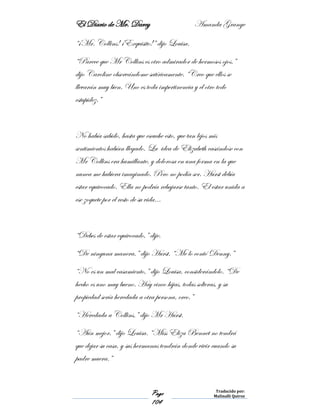 El Diario de Mr. Darcy Amanda Grange
“¡Mr. Collins! ¡Exquisito!” dijo Louisa.
“Parece que Mr Collins es otro admirador de hermosos ojos,”
dijo Caroline observándome satíricamente. “Creo que ellos se
llevarán muy bien. Uno es toda impertinencia y el otro todo
estupidez.”
No había sabido, hasta que escuché esto, que tan lejos mis
sentimientos habían llegado. La idea de Elizabeth casándose con
Mr Collins era humillante, y dolorosa en una forma en la que
nunca me hubiera imaginado. Pero no podía ser. Hurst debía
estar equivocado. Ella no podría rebajarse tanto. El estar unida a
ese zoquete por el resto de su vida…
“Debes de estar equivocado,” dije.
“De ninguna manera,” dijo Hurst. “Me lo contó Denny.”
“No es un mal casamiento,” dijo Louisa, considerándolo. “De
hecho es uno muy bueno. Hay cinco hijas, todas solteras, y su
propiedad será heredada a otra persona, creo.”
“Heredada a Collins,” dijo Mr Hurst.
“Aún mejor,” dijo Louisa. “Miss Eliza Bennet no tendrá
que dejar su casa, y sus hermanas tendrán donde vivir cuando su
padre muera.”
Page
104
Traducido por:
Malinalli Quiroz